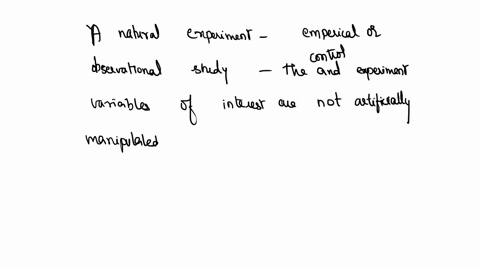 A natural experiment - emperical or
observational study - the control and experiment
variables of interest are not artificially
manipulated